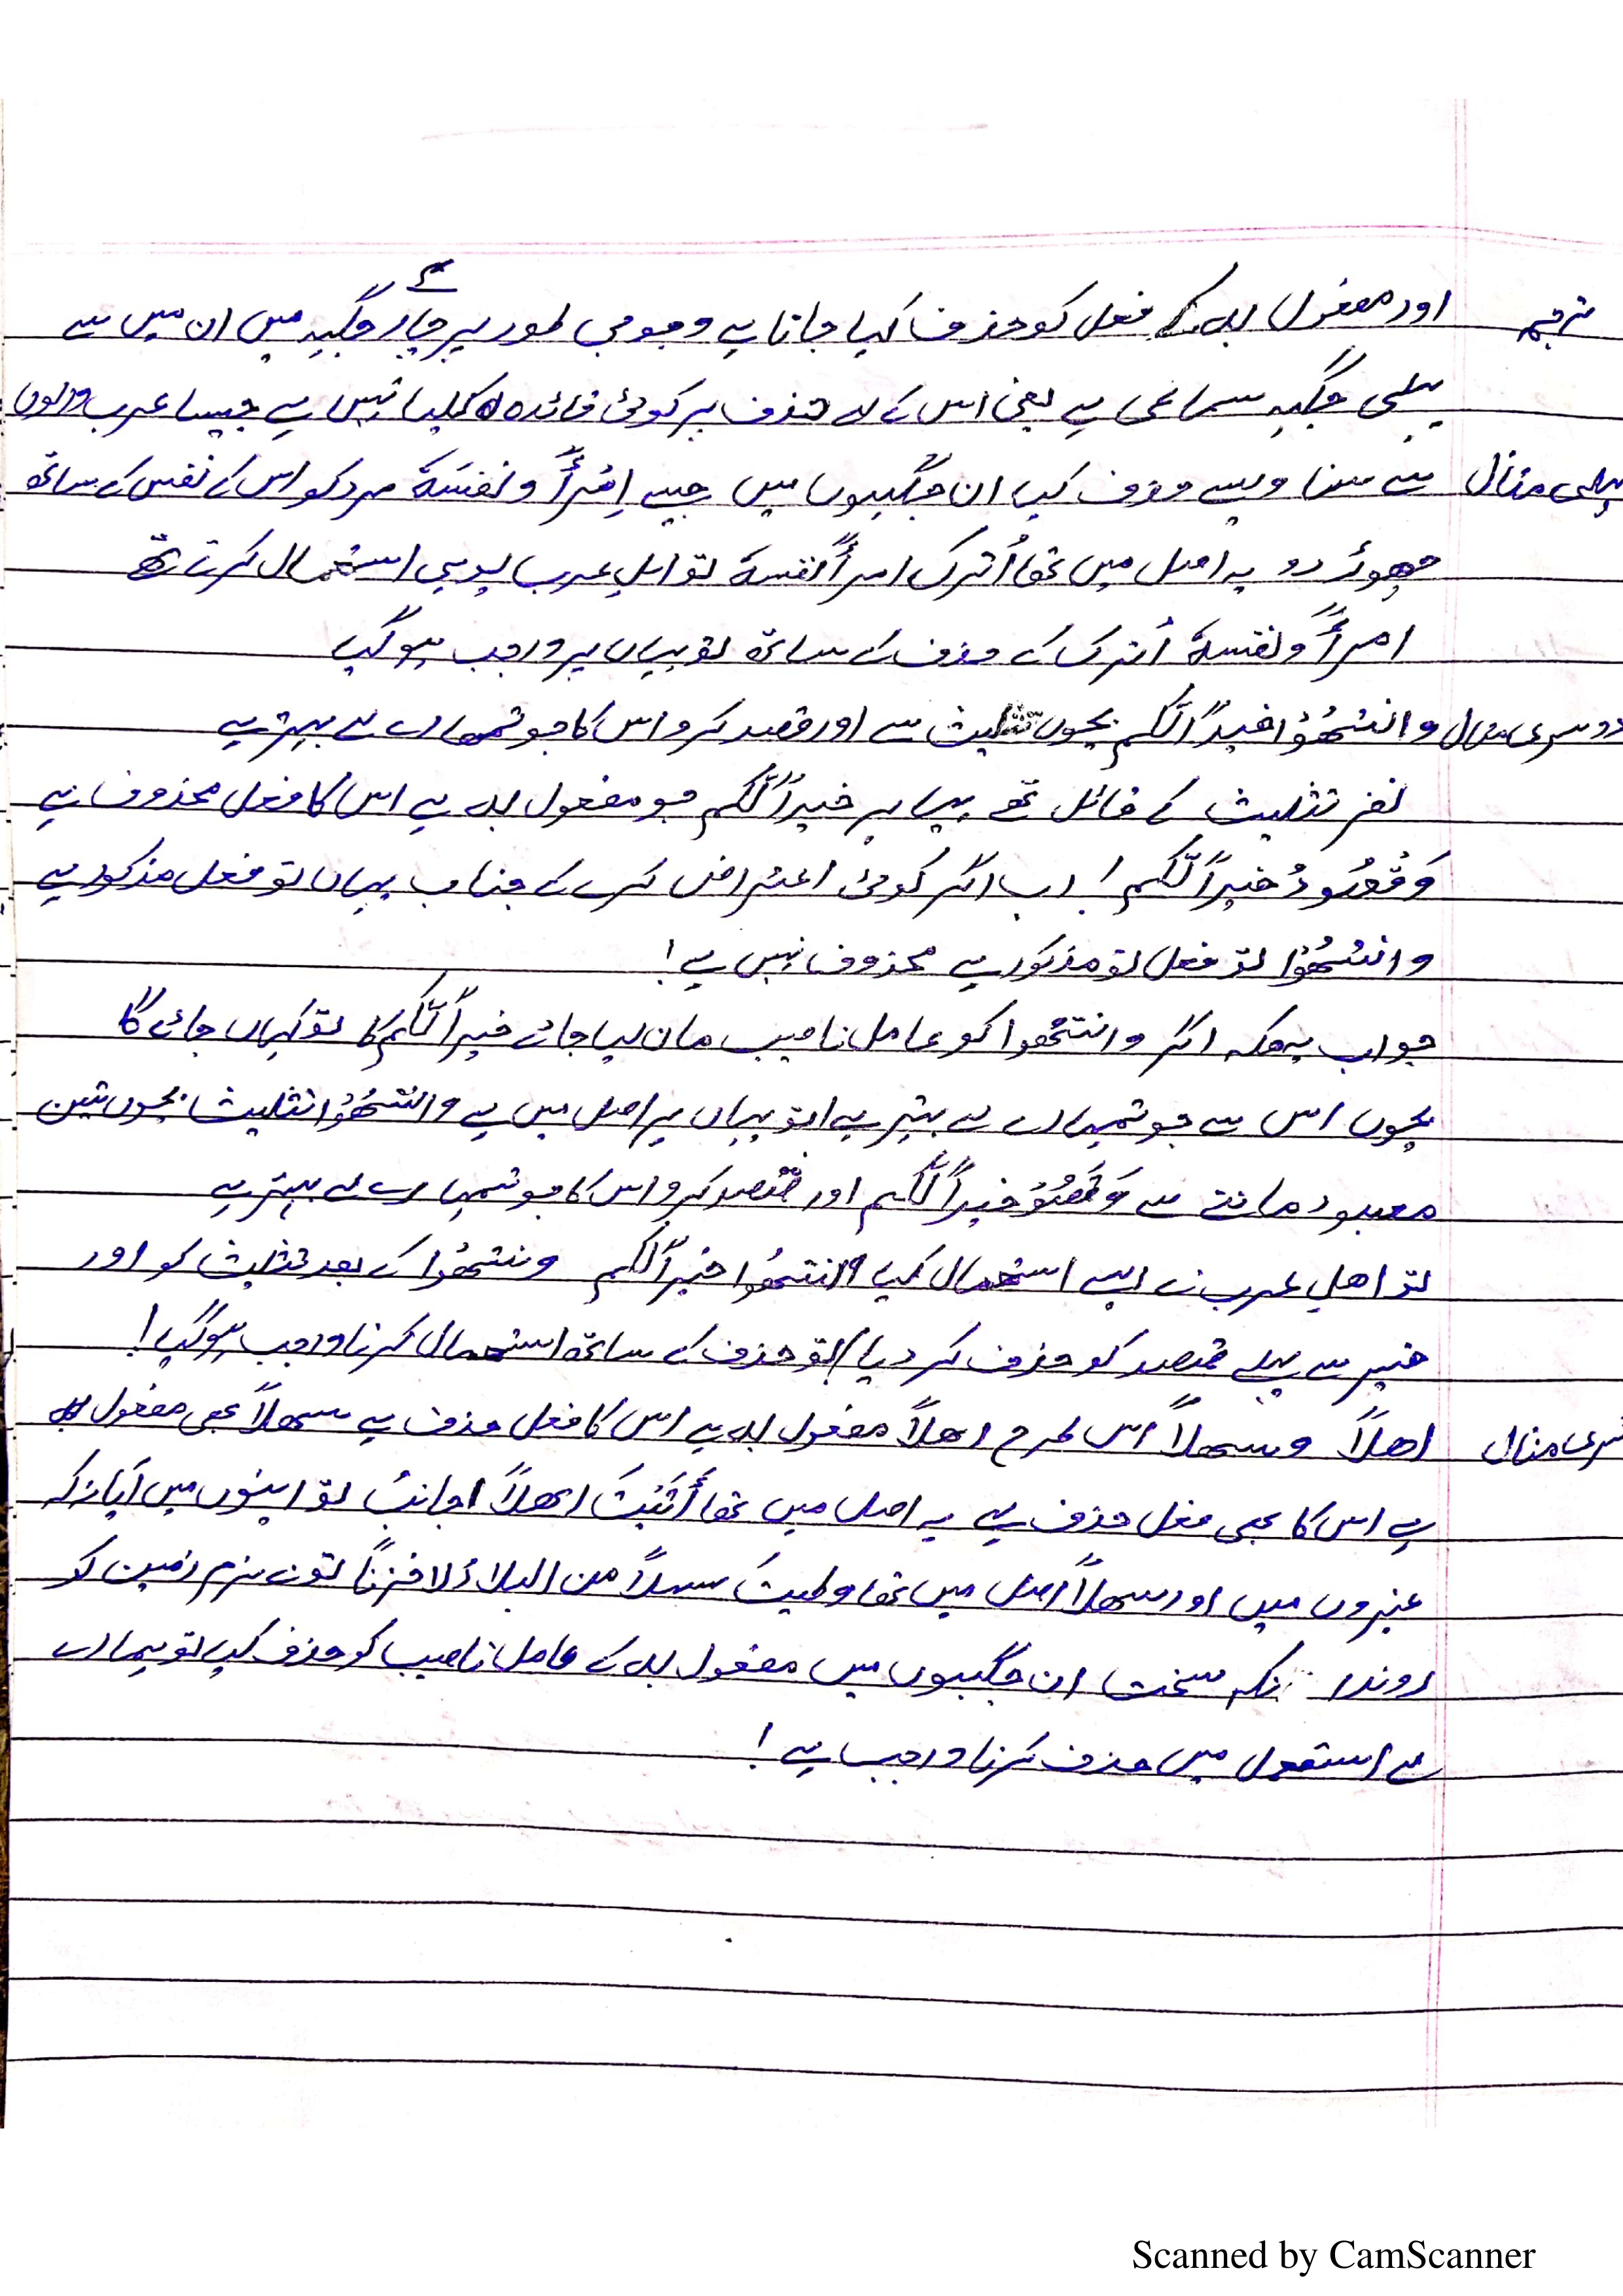 ترجمہ اور مفعول بہ کے فعل کو حذف کیا جاتا ہے وجوبی طور پر چار جگہ میں ان میں سے
پہلی جگہ سماعی ہے یعنی اس کے لے حذف پر کوئی فائدہ کلیا نہیں ہے جیسا عرب والوں
پہلی مثال سے سنا ویسے حذف کیا ان جگہیوں میں جیسے اِمْرأً ونفسَہٗ مرد کو اس کے نفس کے ساتھ
چھوڑ دو یہ اصل میں تھا اُترک امرأً نفسہٗ تو اہل عرب یوہی استعمال کرتے تھے
امرأً ونفسہٗ اُترک کے حذف کے ساتھ تو یہاں پر واجب ہو گیا
دوسری مثال وانتَھُوْا خیراً لّکم بچوں تثلیث سے اور قصد کرو اس کا جو تمھارے لے بہتر ہے
تثلیث کے قائل تھے یہاں پر خیراً لّکم جو مفعول بہ ہے اس کا فعل محذوف ہے
خیراً لّکم! اب اگر کوئی اعتراض کرے کے جناب یہاں تو فعل مذکور ہے
وانتھُوْا تو فعل تو مذکور ہے محذوف نہیں ہے!
جواب یہ ھکہ اگر وانتھُوا کو عامل ناصیب مان لیا جائے خیراً لّکم کا تو کہاں جائے گا
بچوں اس سے جو تمہارے لے بہتر ہے! تو یہاں پر اصل میں ہے وانتَھُوْا تثلیث بچوں تین
معبود ماننے سے خیراً لّکم اور قصد کرو اس کا جو تمہارے لے بہتر ہے
تو اھلِ عرب نے ایسے استعمال کیا وانتھُوا خیراً لّکم ونتھُوا کے بعد تثلیث کو اور
خیر سے پہلے قصد کو حذف کر دیا! تو حذف کے ساتھ استعمال کرنا واجب ہو گیا!
تیسری مثال اھلاً وسھلاً اس طرح اھلاً مفعول بہ ہے اس کا فعل حذف ہے سھلاً بھی مفعول بہ
ہے اس کا بھی فعل حذف ہے یہ اصل میں تھا أَتَیْتَ اھلاً اجانب تو اپنوں میں آیا نکہ
غیروں میں اور سھلاً اصل میں تھا وطیتَ سہلاً من البلاد لا حزناً تونے نرم زمین کو
روندا نکہ سخت ان جگہیوں میں مفعول بہ کے عامل ناصیب کو حذف کیا تو ہمارے
لے استعمال میں حذف کرنا واجب ہے!
Scanned by CamScanner